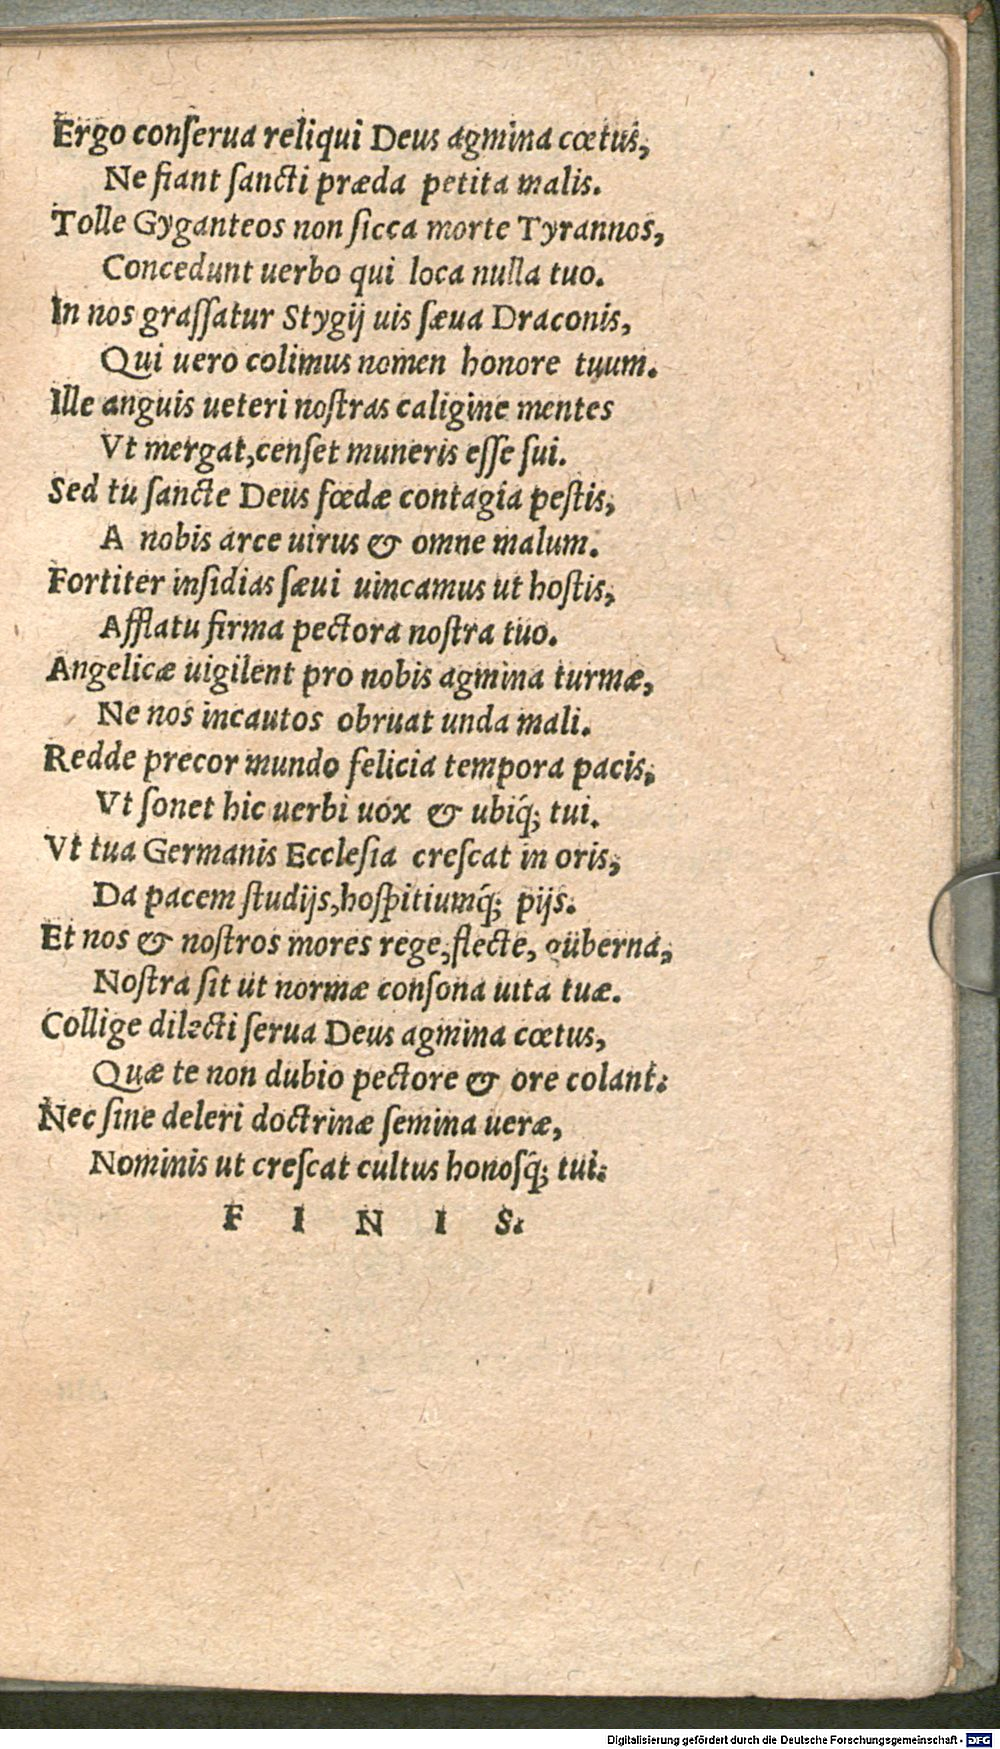 Ergo conſerua reliqui Deus agmina cœtus,
Ne fiant ſancti præda petita malis.
Tolle Gyganteos non ſicca morte Tyrannos,
Concedunt uerbo qui loca nulla tuo.
In nos graſſatur Stygij uis ſæua Draconis,
Qui uero colimus nomen honore tuum.
Ille anguis ueteri noſtras caligine mentes
Vt mergat, cenſet muneris eſſe ſui.
Sed tu ſancte Deus fœdæ contagia peſtis,
A nobis arce uirus & omne malum.
Fortiter inſidias ſæui uincamus ut hoſtis,
Afflatu firma pectora noſtra tuo.
Angelicæ uigilent pro nobis agmina turmæ,
Ne nos incautos obruat unda mali.
Redde precor mundo felicia tempora pacis,
Vt ſonet hic uerbi uox & ubiq́; tui.
Vt tua Germanis Eccleſia creſcat in oris,
Da pacem ſtudijs, hoſpitiumq́; pijs.
Et nos & noſtros mores rege, flecte, guberna,
Noſtra ſit ut normæ conſona uita tuæ.
Collige dilecti ſerua Deus agmina cœtus,
Quæ te non dubio pectore & ore colant.
Nec ſine deleri doctrinæ ſemina ueræ,
Nominis ut creſcat cultus honoſq́; tui.
F I N I S.
Digitalisierung gefördert durch die Deutsche Forschungsgemeinschaft - DFG